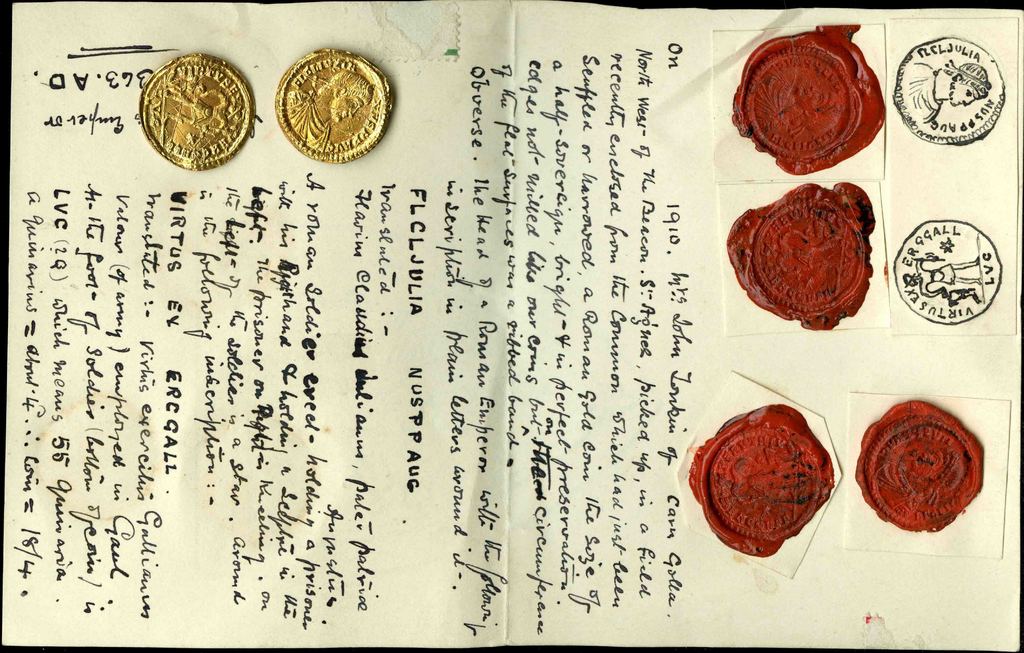 FLCLJULIA NUSPPAUG
VIRTUSEXERGGALL
LVC
On 1910. Mrs John Tonkin of Carn Golla.
North West of The Beacon. St Agnes, picked up, in a field
recently enclosed from the Common which had just been
Scuffled or harrowed, a Roman Gold coin the size of
a half-sovereign, bright & in perfect preservation.
edges not-milled like our coins but on the circumference
of the flat surfaces was a ribbed band.
Obverse. The Head of a Roman Emperor with the following
inscription in plain letters around it-.
FLCLJULIA NUSPPAUG
translated :-
Flavius Claudius Julianus, pater patriæ
Augustus.
A roman Soldier erect- holding a prisoner
with his Right hand & holding a Sceptre in the
left. The prisoner on Right is Kneeling. on
the left of the soldier is a star. around
is the following inscription :-
VIRTUS EX ERCGALL
translated :- Virtus exercitus Gallianus
Valour (of army) employed in Gaul.
At the foot of Soldier (bottom of coin) is
LVC (?9) which means 55 Quinaria.
a quinarius = about 4. ∴ coin = 18/4.
Emperor
363. A.D.